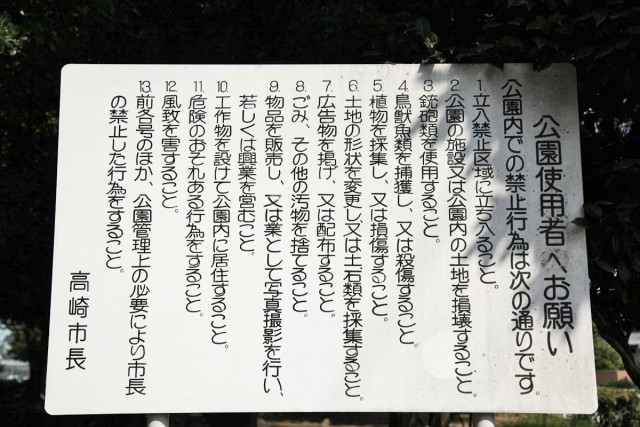 公園使用者へお願い
公園内での禁止行為は次の通りです。
1. 立入禁止区域に立ち入ること。
2. 公園の施設又は公園内の土地を損壊すること。
3. 銃砲類を使用すること。
4. 鳥獣魚類を捕獲し、又は殺傷すること。
5. 植物を採集し、又は損傷すること。
6. 土地の形状を変更し又は土石類を採集すること。
7. 広告物を掲げ、又は配布すること。
8. ごみ、その他の汚物を捨てること。
9. 物品を販売し、又は業として写真撮影を行い、
若しくは興業を営むこと。
10. 工作物を設けて公園内に居住すること。
11. 危険のおそれある行為をすること。
12. 風致を害すること。
13. 前各号のほか、公園管理上の必要により市長
の禁止した行為をすること。
高崎市長